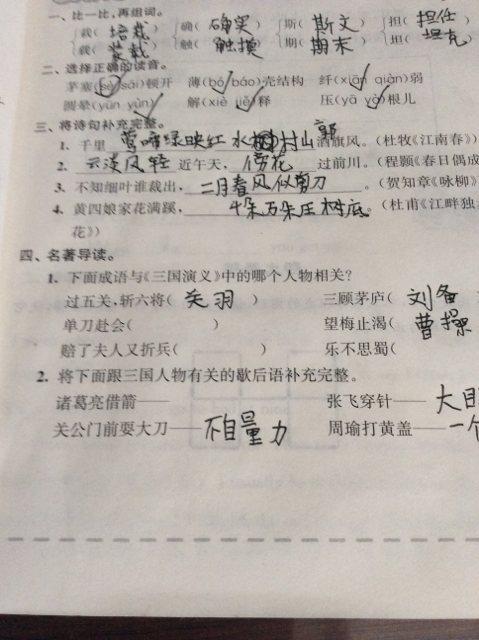 一、比一比,再组词。
栽(培栽) 确(确实) 斯(斯文) 担(担任
裁( 触(触摸 期(期末 坦(坦克
二、选择正确的读音。
茅塞(sè sāi)顿开 薄(bó báo)壳结构 纤(xiān qiàn)弱
圆晕(yūn yùn) 解(xiè jiě)释 压(yā yà)根儿
三、将诗句补充完整。
1. 千里莺啼绿映红 水村山郭酒旗风。(杜牧《江南春》)
2. 云淡风轻近午天,傍花 过前川。(程颢《春日偶成
3. 不知细叶谁裁出,二月春风似剪刀。(贺知章《咏柳》
4. 黄四娘家花满蹊,千朵万朵压树底。(杜甫《江畔独
花》)
四、名著导读。
1. 下面成语与《三国演义》中的哪个人物相关?
过五关,斩六将(关羽) 三顾茅庐(刘备
单刀赴会( ) 望梅止渴(曹操
赔了夫人又折兵( ) 乐不思蜀(
2. 将下面跟三国人物有关的歇后语补充完整。
诸葛亮借箭—— 张飞穿针——大
关公门前耍大刀——不自量力 周瑜打黄盖——一个